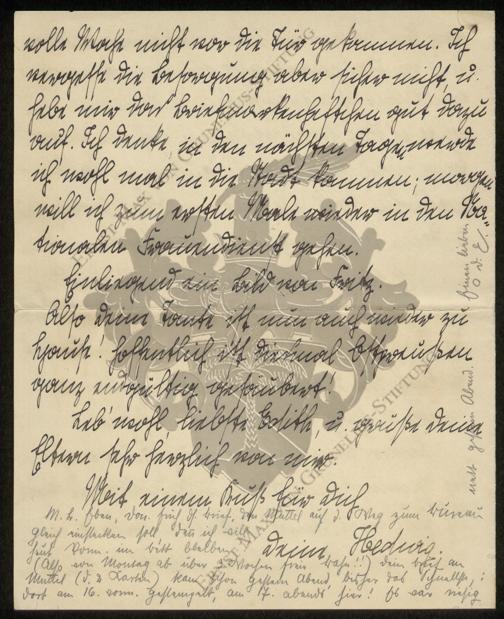 volle Woche nicht vor die Tür gekommen. Ich
vergesse die Besorgung aber sicher nicht, u.
hebe mir das Briefmarkenheftchen gut dazu
auf. Ich denke, in den nächsten Tagen werde
ich wohl mal in die Stadt kommen; morgen
will ich zum ersten Male wieder in den Na-
tionalen Frauendienst gehen.
Einliegend ein Bild von Fritz.
Also deine Tante ist nun auch wieder zu
Hause. Hoffentlich ist diesmal Ostpreußen
ganz endgültig gesäubert!
Leb' wohl, liebste Edith, u. grüße deine
Eltern sehr herzlich von mir.
Mit einem Kuß für Dich
Deine Hedwig.
M. L. Eben, von früh Brief, den Muttel auf d. Weg zum Bureau
gleich einstecken soll, den ich will
heut Vorm. im Bett bleiben.
(Also von Montag ab über Wochen frei) dein Brief an
Muttel (d. 2 Karten) kam schon gestern Abend,
dort am 16. vorm. gestempelt, am 17. abends hier! Es war riesig
nett gestern Abend.
Einen lieben